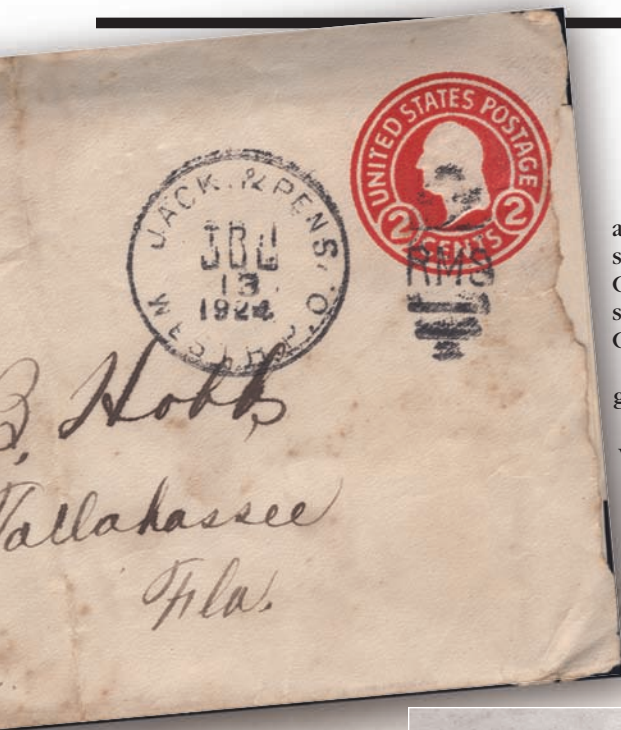 UNITED STATES POSTAGE
2 CENTS 2
JACK. & PENS.
13
1924
RMS
B. Hobb
Tallahassee
Fla.
a
s
O
s
O
g